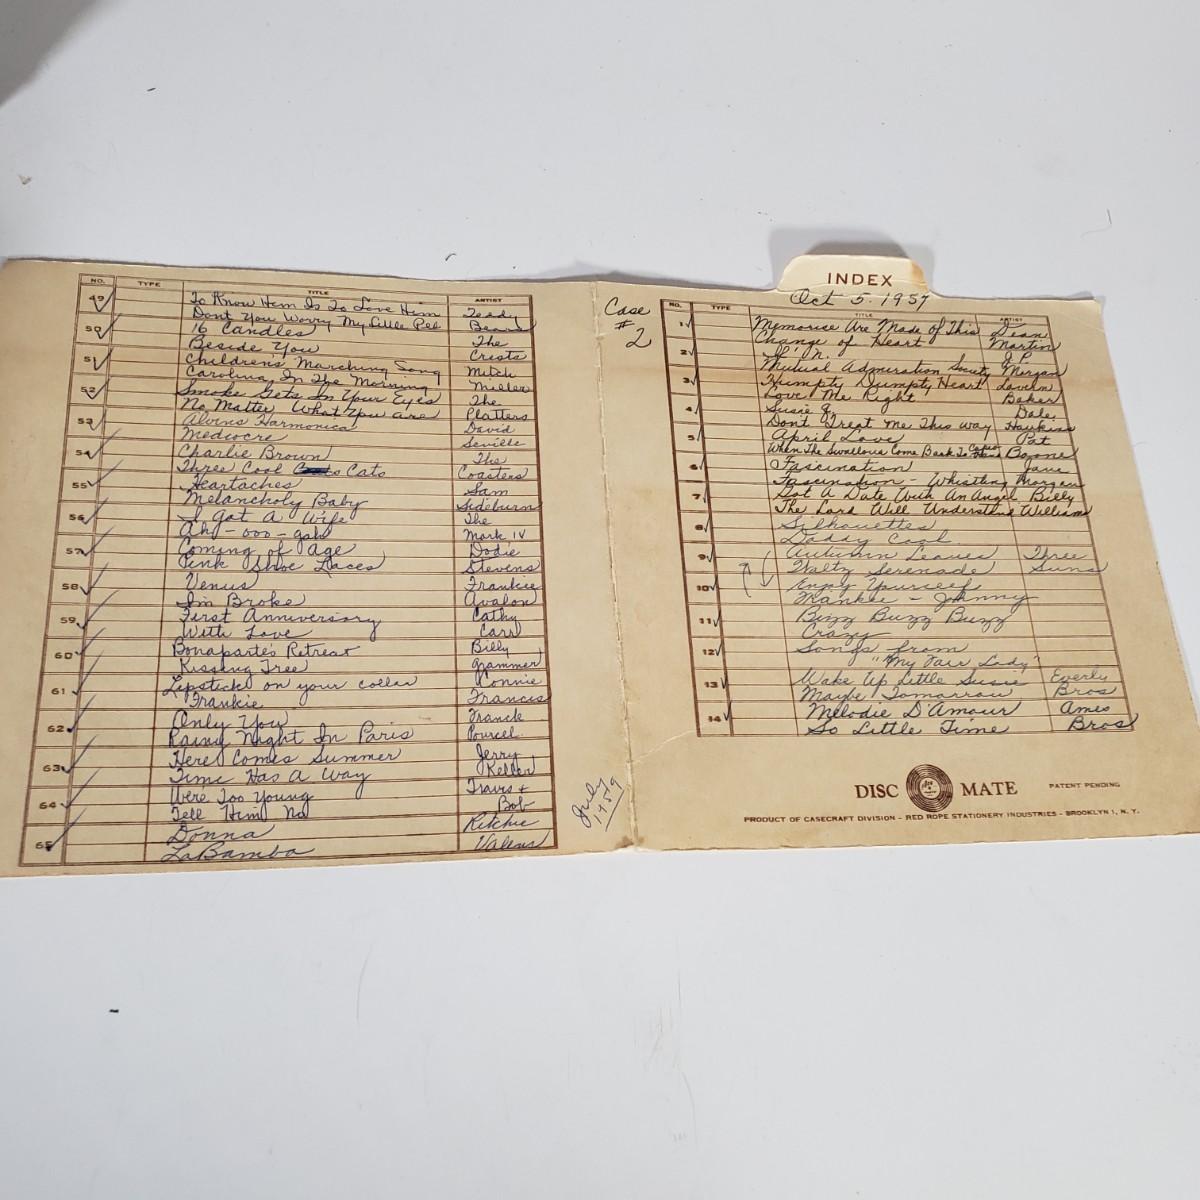 NO. TYPE TITLE ARTIST
49 To Know Him Is To Love Him Teddy
Dont You Worry My Little Pet Bears
50 16 Candles The
Beside You Crests
51 Children's Marching Song Mitch
Carolina In The Morning Miller
52 Smoke Gets In Your Eyes The
No Matter What You are Platters
53 Alvins Harmonica David
Mediocre Seville
54 Charlie Brown The
Three Cool Cats Coasters
55 Heartaches Sam
Melancholy Baby Sideburn
56 I Got A Wife The
Ahj-ooo-gah Mark IV
57 Coming of Age Dodie
Pink Shoe Laces Stevens
58 Venus Frankie
I'm Broke Avalon
59 First Anniversary Cathy
With Love Carr
60 Bonaparte's Retreat Billy
Kissing Tree Grammer
61 Lipstick on your collar Connie
Frankie Francis
62 Only You Franck
Rainy Night In Paris Pourcel
63 Here Comes Summer Jerry
Time Has A Way Keller
64 We're Too Young Travis +
Tell Him No Bob
65 Donna Ritchie
LaBamba Valens
July
1959
Case
#
2
INDEX
Oct 5. 1957
NO. TYPE TITLE ARTIST
1 Memorise Are Made of This Dean
Change of Heart Martin
2 J.P.
Mutual Admiration Society Morgan
3 Humpty Dumpty Heart Lavern
Love Me Right Baker
4 Susie Q. Dale
Don't Treat Me This way Hawkins
5 April Love Pat
When The Swallows Come Back To Boone
6 Fascination Jane
Fascination - Whistling Morgan
7 Got A Date With An Angel Billy
The Lord Will Understand Williams
8 Silhouettes
Daddy Cool
9 Autumn Leaves Three
Waltz Serenade Suns
10 Enjoy Yourself
Frankie - Johnny
11 Bizz Buzz Buzz
Crazy
12 Songs from
"My Fair Lady"
13 Wake Up Little Susie Everly
Maybe Tomorrow Bros
14 Melodie D'Amour Ames
So Little Time Bros
DISC MATE PATENT PENDING
PRODUCT OF CASECRAFT DIVISION - RED ROPE STATIONERY INDUSTRIES - BROOKLYN 1, N. Y.